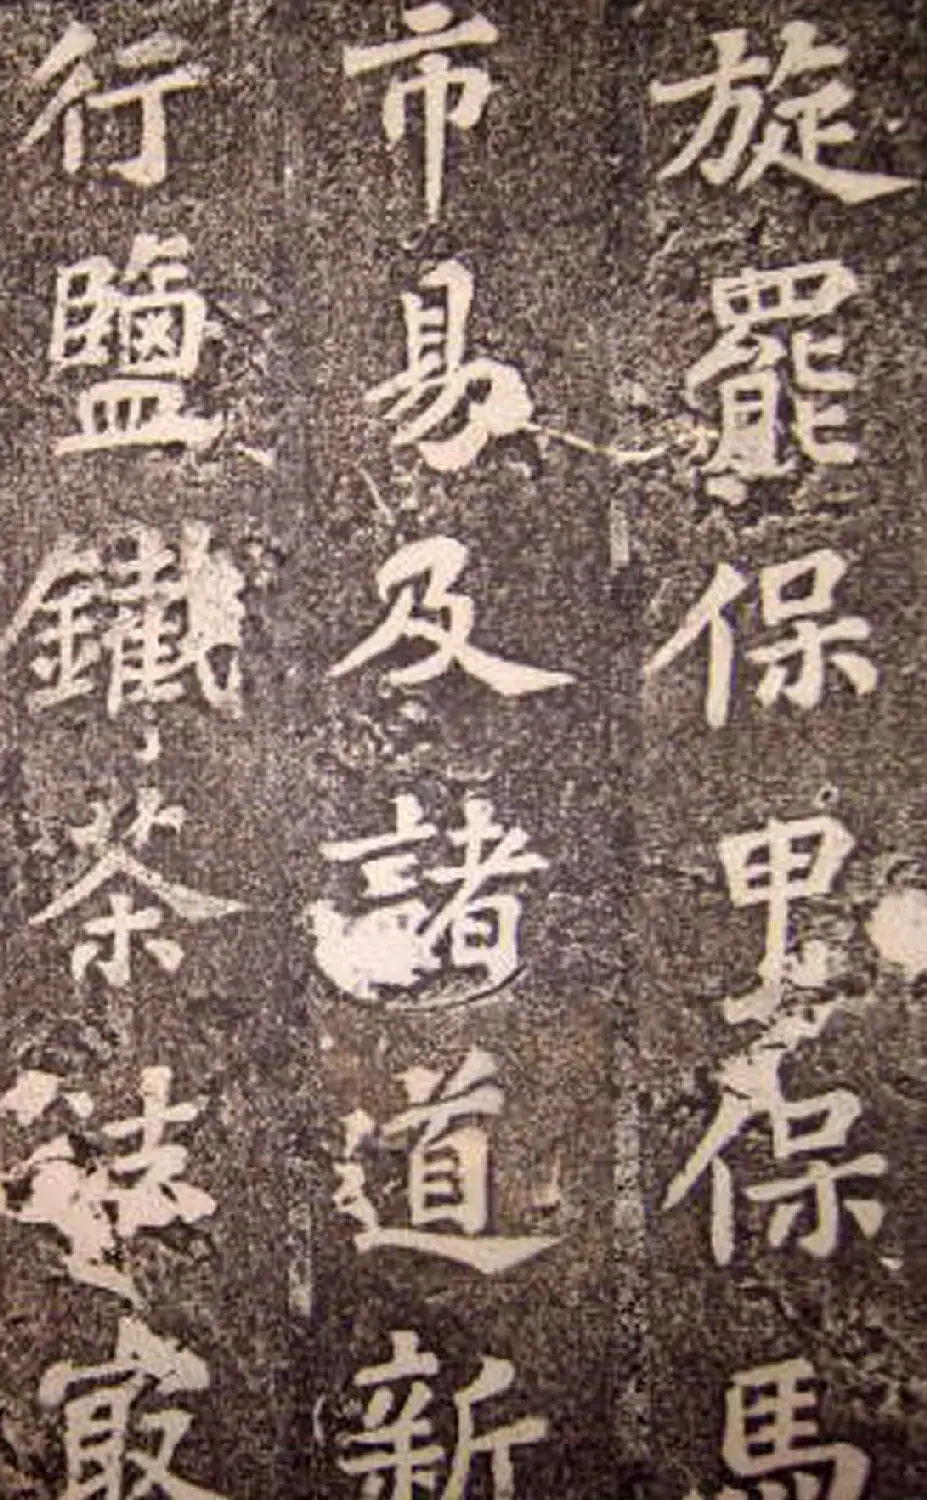 旋罷保甲保馬
市易及諸道新
行鹽鐵茶法㝡